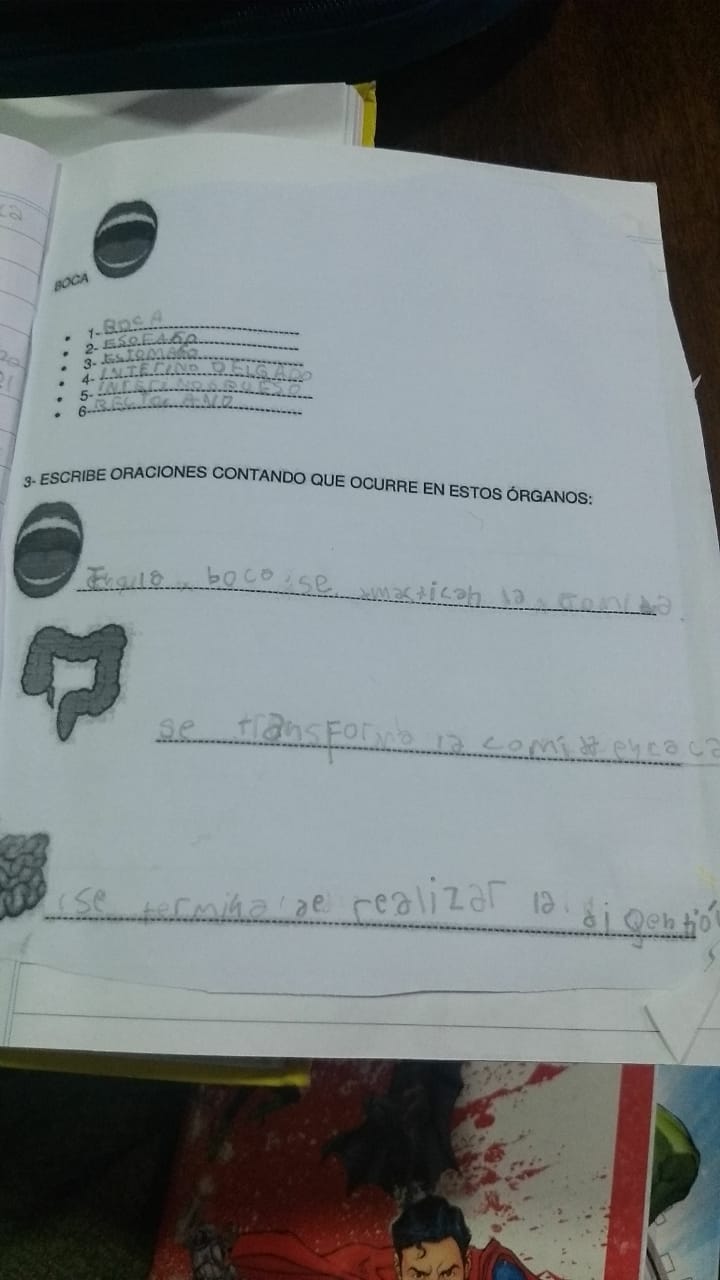 BOCA
1- BOCA
2- ESOFAGO
3- ESTOMAGO
4- INTECINO DELGADO
5- INTECINO GRUESO
6- RECTO ANO
3- ESCRIBE ORACIONES CONTANDO QUE OCURRE EN ESTOS ÓRGANOS:
boca se mastican la comida
se transforma la comida en caca
se termina de realizar la digentió